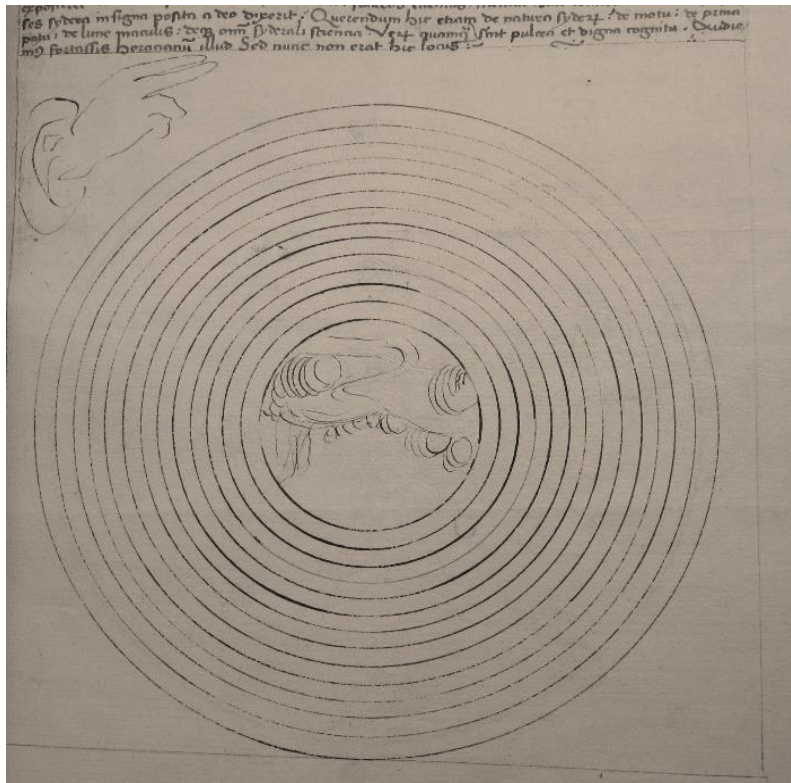 ses sydera in signa posita a deo dixerit. Querendum hic etiam de natura syderꝝ: de motu: de prima
patu: de lune maculis: deqꝫ omī syderali sciencia Verꝝ quamqꝫ sint pulcra et digna cognitu. Audie
mꝰ fortassis horacianū illud Sed nunc non erat hic locus: